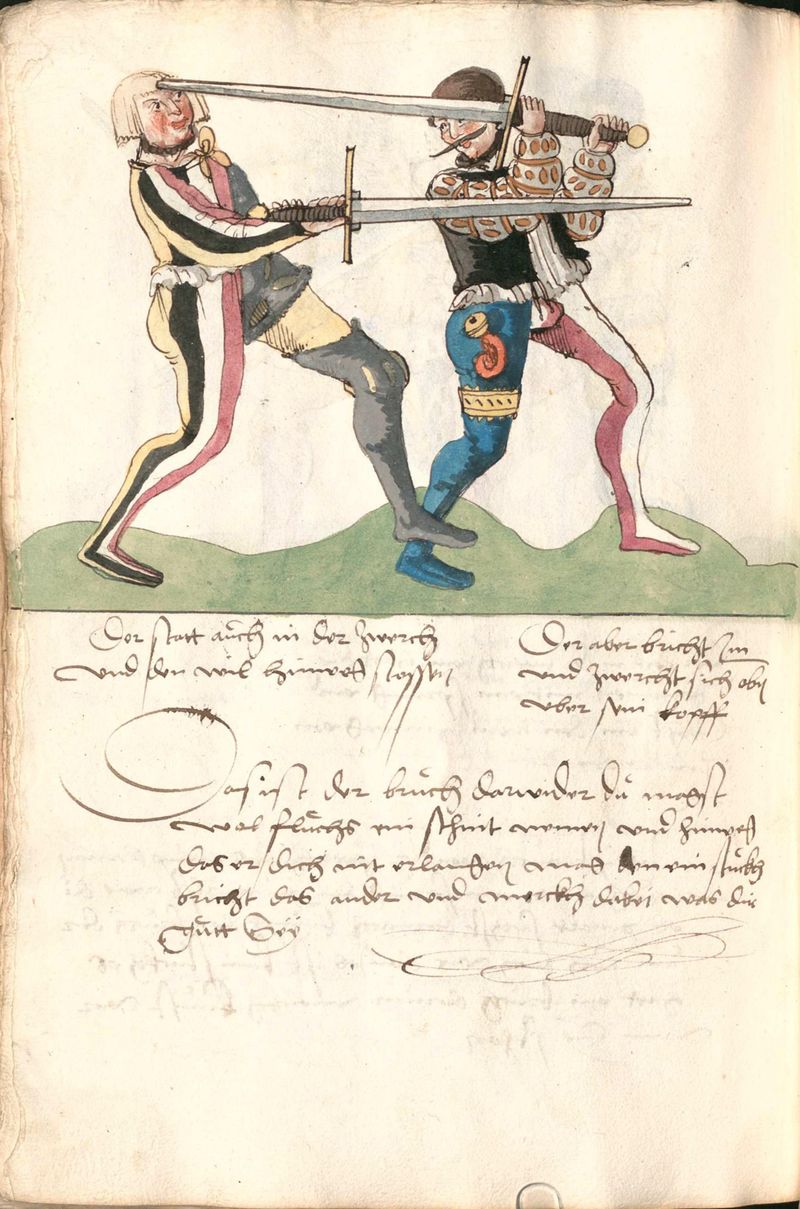 Der statt auch in der zwerch
und den wil hinweg stossen
Der aber bricht Im
und zwercht sich oben
vber sein kopff
Das ist der bruch darwider du magst
wol fluchs ein schnit nemen und hinweg
das er dich nit erlangen mag den ein stuckh
bricht das ander und merckh dabei was dir
gutt Seÿ